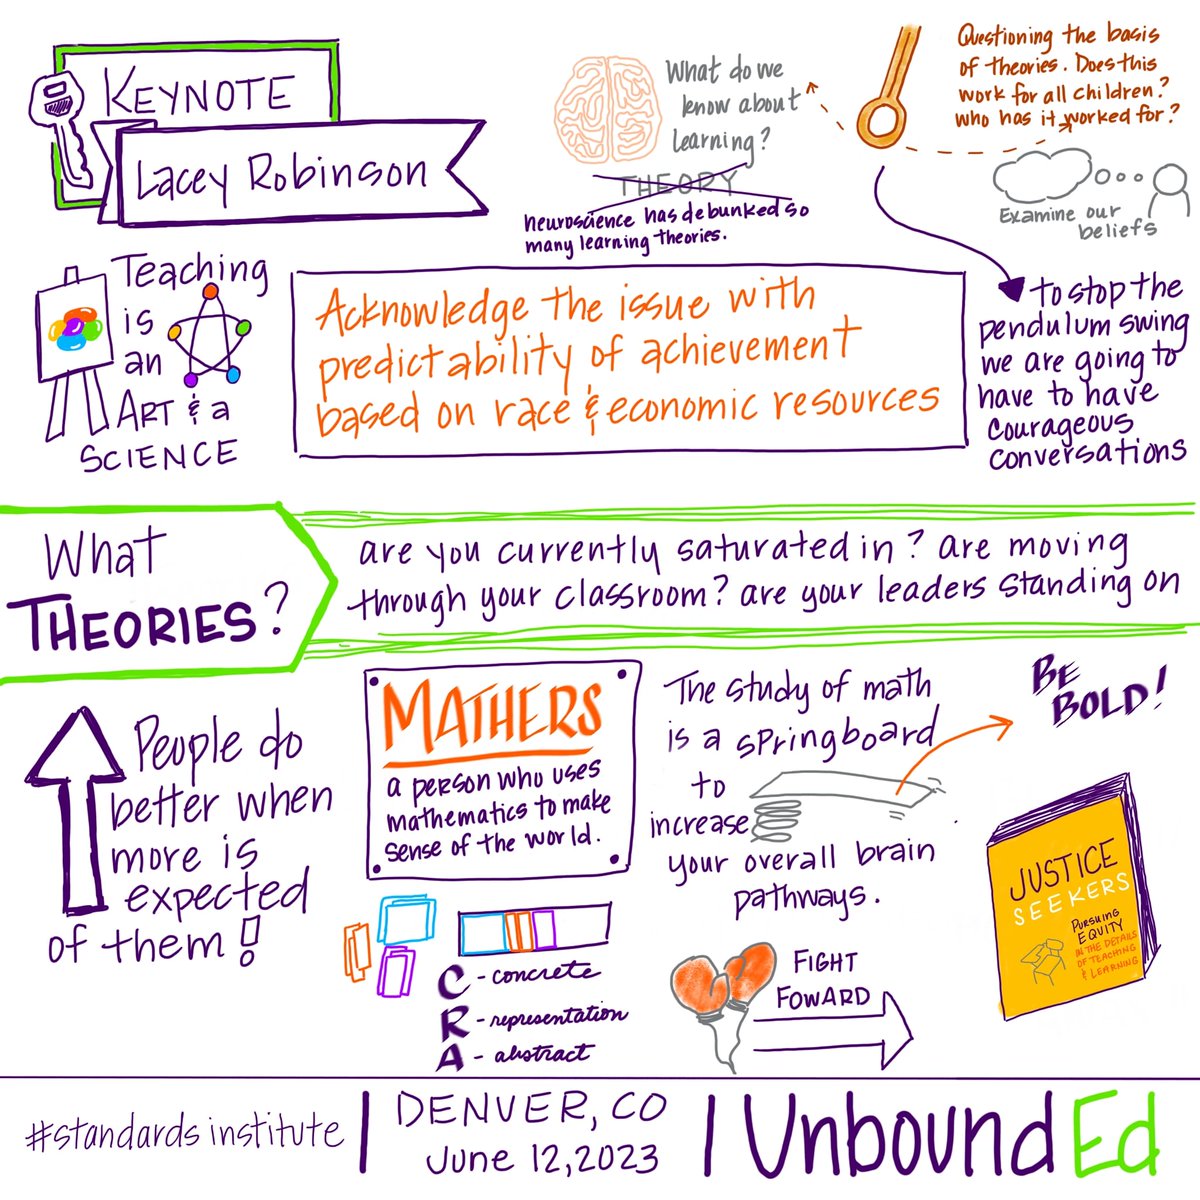 KEYNOTE
Lacey Robinson
What do we
know about
learning?
THEORY
neuroscience has debunked so
many learning theories.
Questioning the basis
of theories. Does this
work for all children?
who has it worked for?
Examine our
beliefs
to stop the
pendulum swing
we are going to
have to have
courageous
conversations
Teaching
is
an
ART & a
SCIENCE
Acknowledge the issue with
predictability of achievement
based on race & economic resources
What
THEORIES?
are you currently saturated in? are moving
through your classroom? are your leaders standing on
People do
better when
more is
expected
of them!
MATHERS
a person who uses
mathematics to make
sense of the world.
C - concrete
R - representation
A - abstract
The study of math
is a springboard
to
increase
your overall brain
pathways.
BE
BOLD!
JUSTICE
SEEKERS
PURSUING
EQUITY
IN THE DETAILS
OF TEACHING
& LEARNING
FIGHT
FOWARD
#standards institute
DENVER, CO
June 12, 2023
UnboundEd